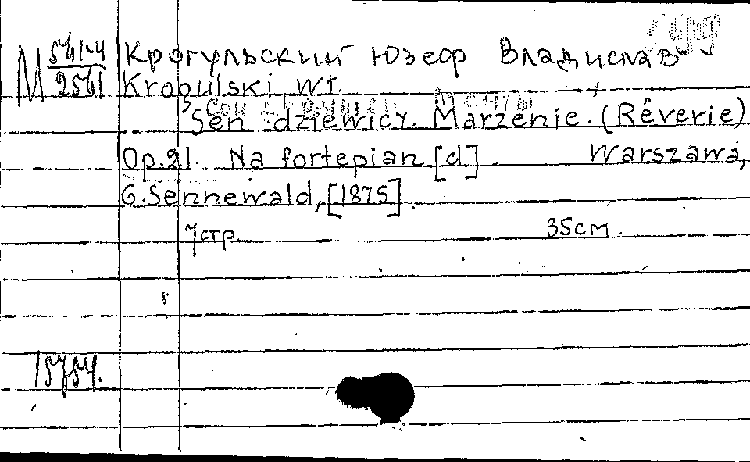 М 561-4/2561
Крогульский Юзеф Владислав
Krogulski Wł.
Sen dziewicy. Marzenie. (Rêverie)
Op. 21. Na fortepian [d] Warszawa,
G. Sennewald, [1875].
7 стр. 35 см.
15754.